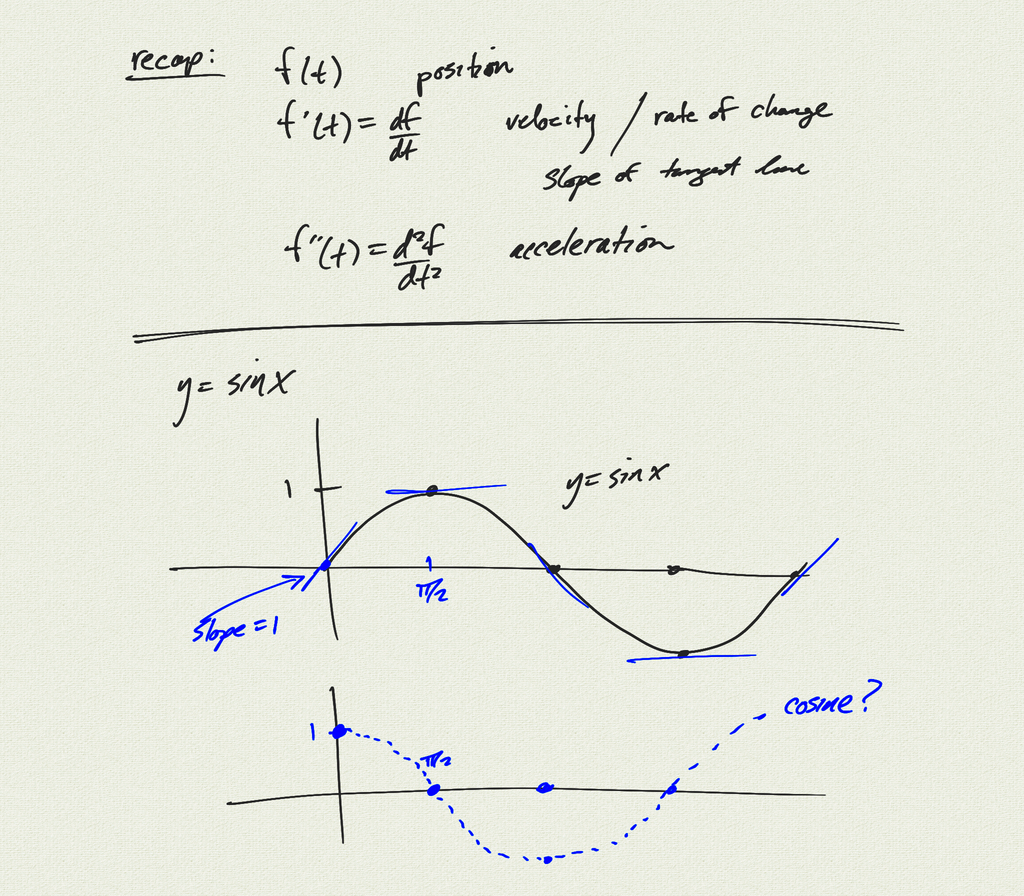 recap: f(t) position
f'(t) = df/dt velocity / rate of change
slope of tangent line
f''(t) = d²f/dt² acceleration
y = sin x
1
y = sin x
π/2
slope = 1
cosine?
1
π/2